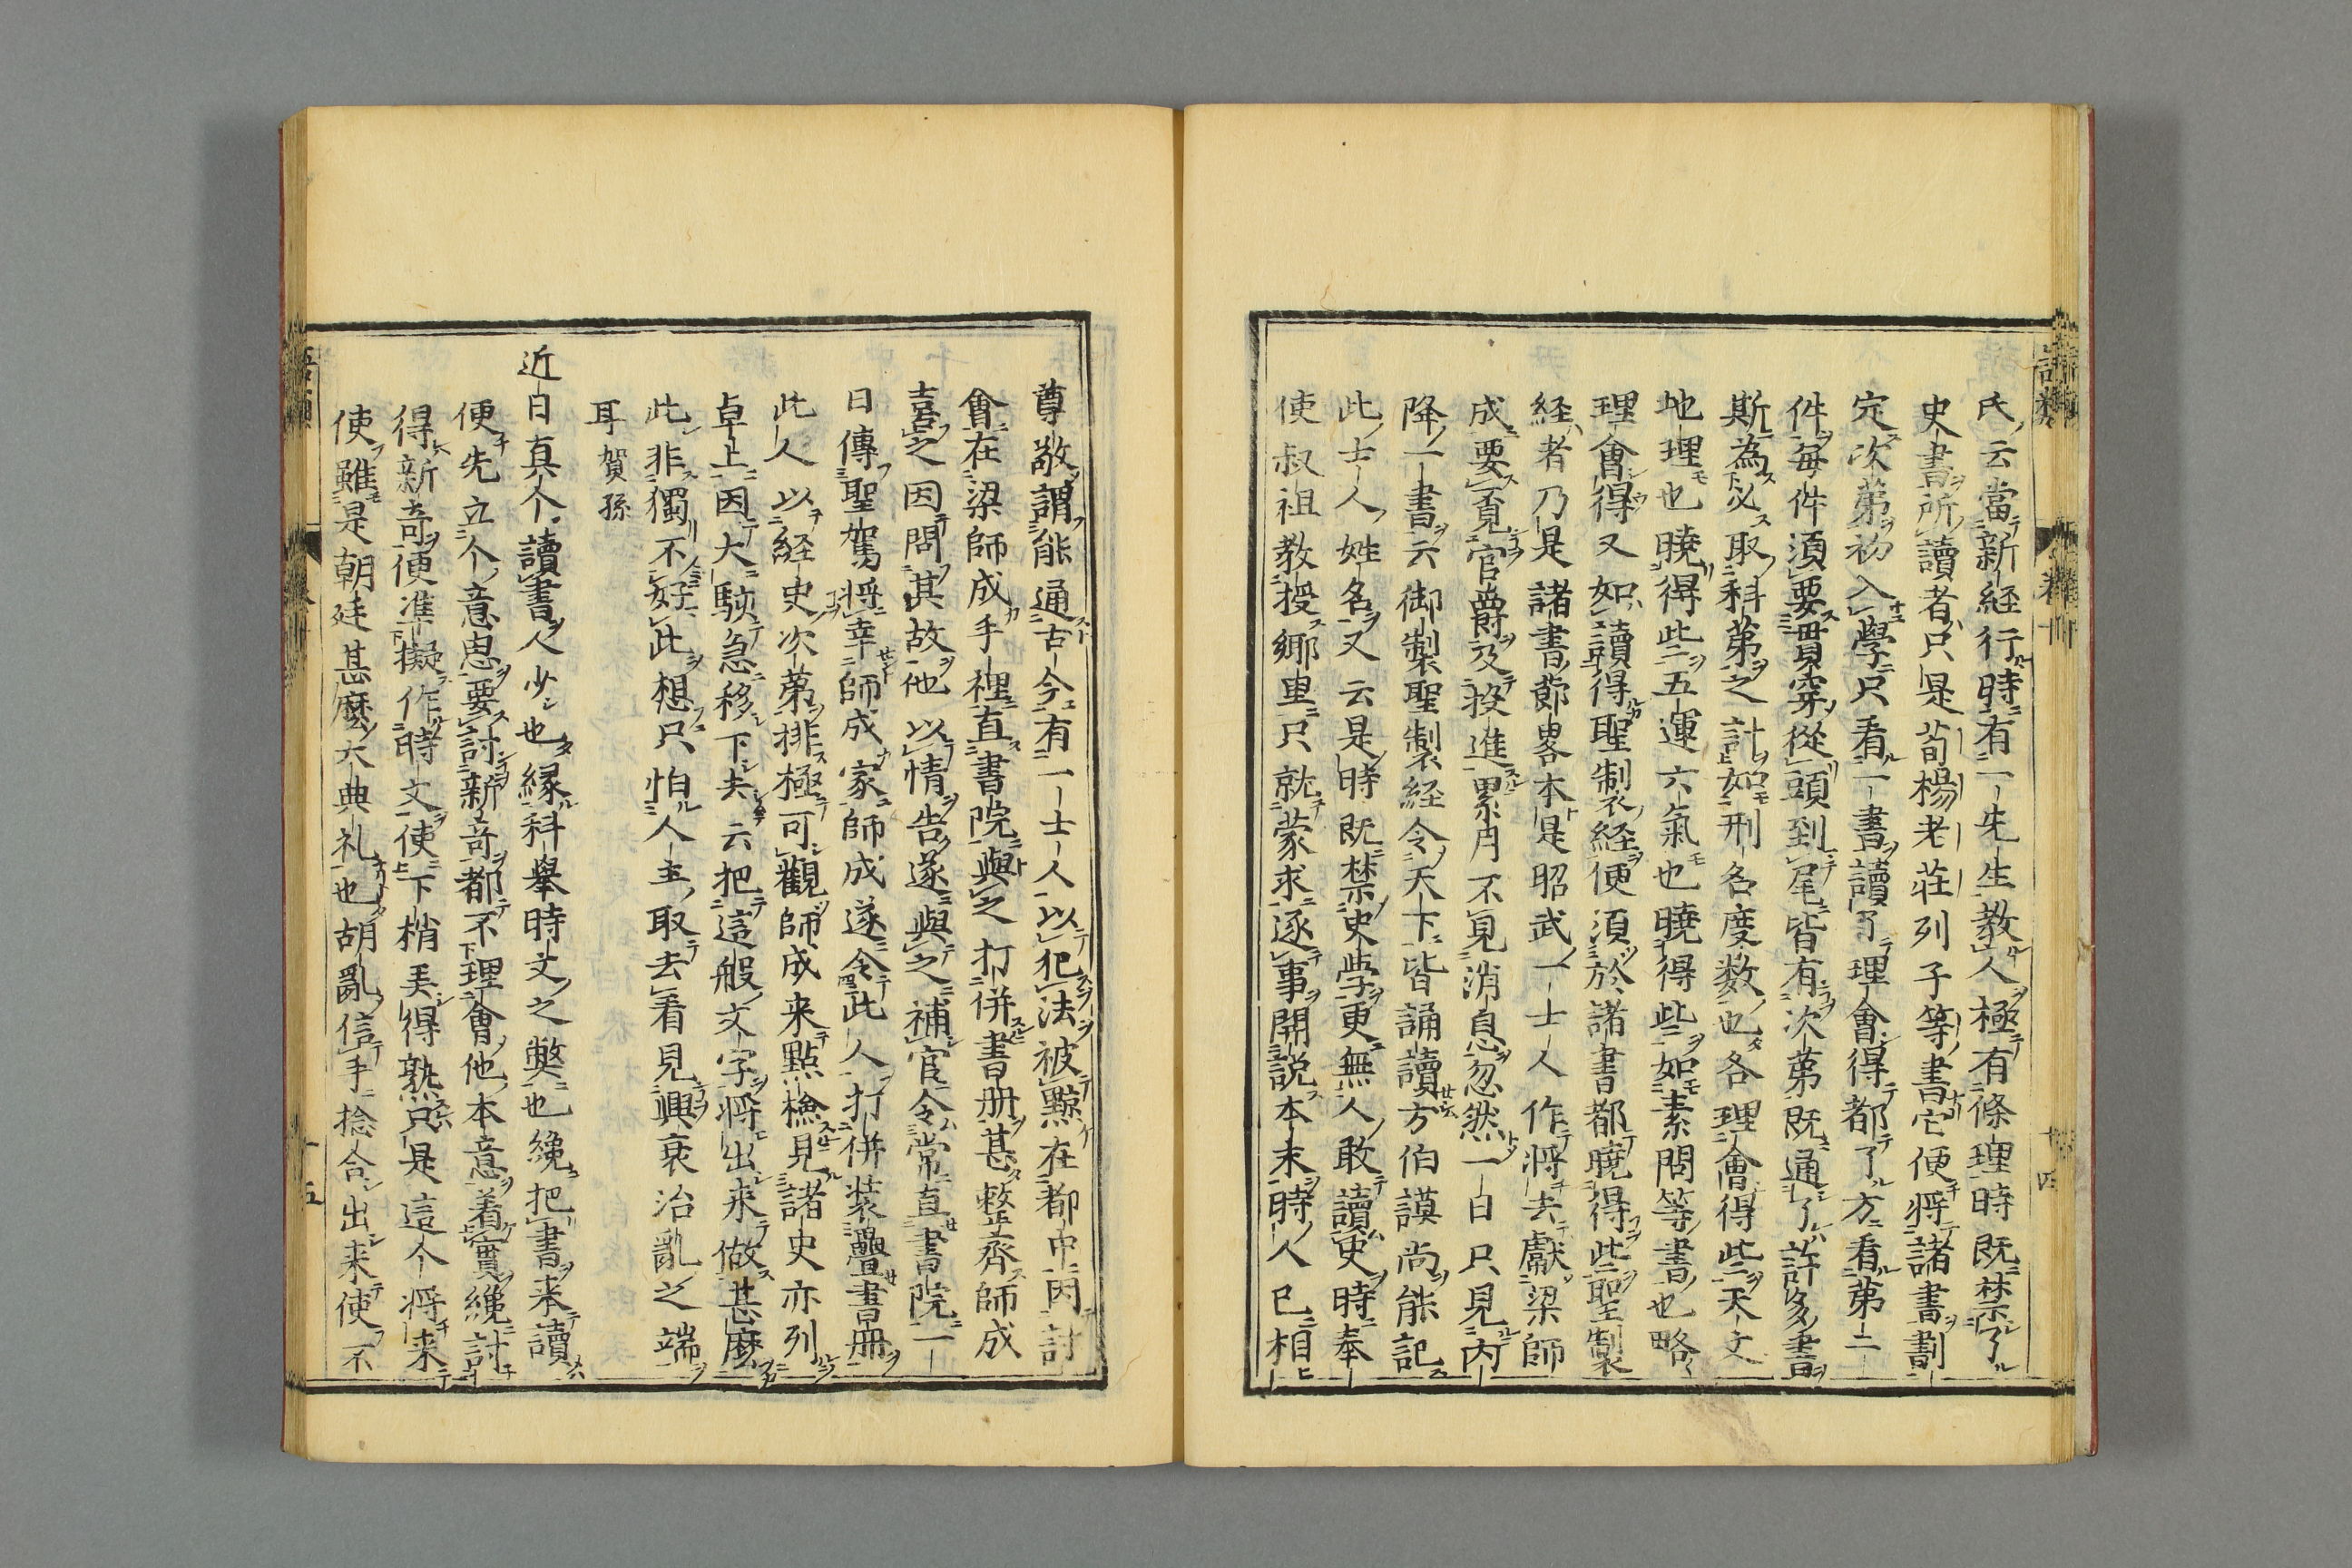 氏云當新経行時有一先生教人極有條理時既禁了
史書所讀者只是荀楊老莊列子等書它便將諸書劃
定次第初入學只看一書讀了理會得都了方看第二
件每件須要貫穿從頭到尾皆有次第既通了許多書
斯為必取科第之計如刑名度数也各理會得些天文
地理也曉得些五運六氣也曉得些如素問等書也略
理會得又如讀得聖制経便須於諸書都曉得些聖製
経者乃是諸書節畧本是昭武一士人作將去獻梁師
成要覓官爵及投進累月不見消息忽然一日只見内
降一書云御製聖製経令天下皆誦讀方伯謨尚能記
此士人姓名又云是時既禁史學更無人敢讀史時奉
使叔祖教授郷里只就蒙求逐事開説本末時人已相
尊敬謂能通古今有一士人以犯法被黥在都中因計
會在梁師成手裡直書院與之打併書册甚整齊師成
喜之因問其故他以情告遂與之補官令常直書院一
日傳聖駕將幸師成家師成遂令此人打併装疊書册
此人以経史次第排極可觀師成来點檢見諸史亦列
卓上因大駭急移下去云把這般文字將出来做甚麼
此非獨不好此想只怕人主取去看見興衰治亂之端
耳賀孫
近日真个讀書人少也縁科舉時文之弊也纔把書来讀
便先立个意思要討新奇都不理會他本意着實纔討
得新奇便准擬作時文使下梢弄得熟只是這个將来
使雖是朝廷甚麼大典礼也胡亂信手捻合出来使不
語類
卷十
十四
十五